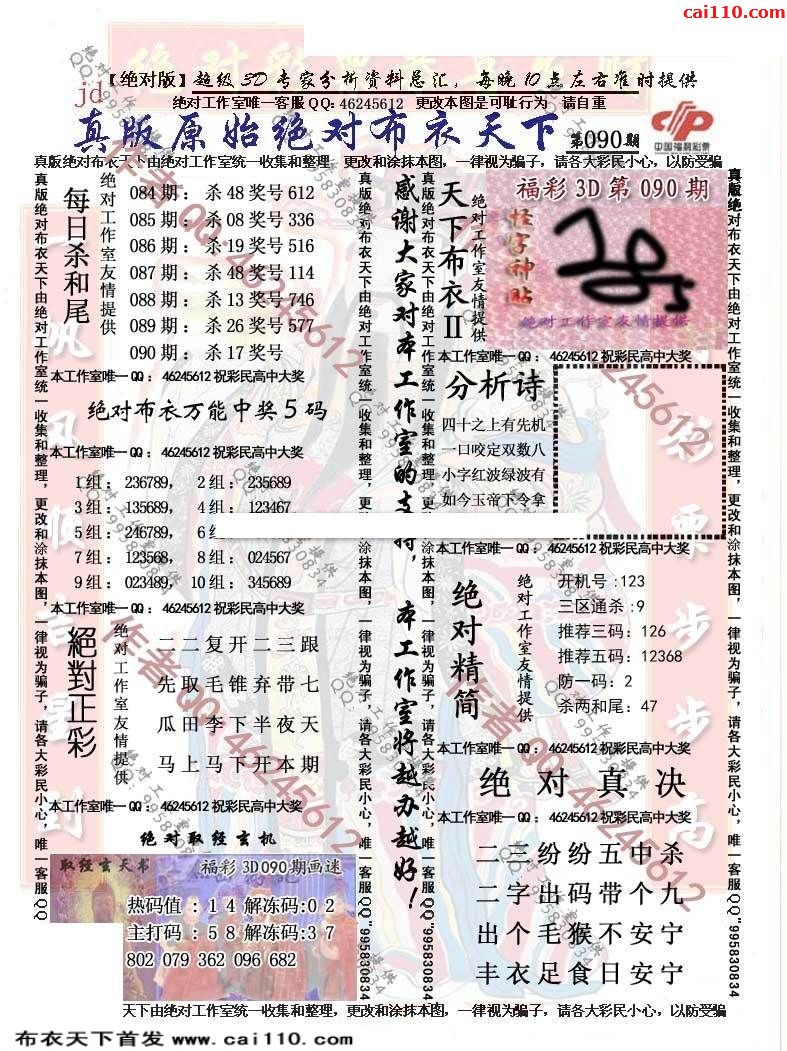 cai110.com
【绝对版】超级3D专家分析资料总汇，每晚10点左右准时提供
jd
绝对工作室唯一客服QQ: 46245612 更改本图是可耻行为 请自重
真版原始绝对布衣天下
第090期
中国福利彩票
真版绝对布衣天下由绝对工作室统一收集和整理，更改和涂抹本图，一律视为骗子，请各大彩民小心，以防受骗
每日杀和尾
绝对工作室友情提供
084期：杀48奖号612
085期：杀08奖号336
086期：杀19奖号516
087期：杀48奖号114
088期：杀13奖号746
089期：杀26奖号577
090期：杀17奖号
本工作室唯一QQ：46245612祝彩民高中大奖
绝对布衣万能中奖5码
本工作室唯一QQ：46245612祝彩民高中大奖
1组：236789， 2组：235689
3组：135689， 4组：123467
5组：246789， 6
7组：123568， 8组：024567
9组：023489， 10组：345689
本工作室唯一QQ：46245612祝彩民高中大奖
絕對正彩
绝对工作室友情提供
二二复开二三跟
先取毛锥弃带七
瓜田李下半夜天
马上马下开本期
本工作室唯一QQ：46245612祝彩民高中大奖
绝对取经玄机
取经玄天书
福彩3D090期画迷
热码值：14解冻码:02
主打码：58解冻码:37
802 079 362 096 682
感谢大家对本工作室的支持，本工作室将越办越好！
天下布衣II
绝对工作室友情提供
福彩3D第090期
怪字神贴
绝对工作室友情提供
本工作室唯一QQ：46245612祝彩民高中大奖
分析诗
四十之上有先机
一口咬定双数八
小字红波绿波有
如今玉帝下令拿
本工作室唯一QQ：46245612祝彩民高中大奖
绝对精简
绝对工作室友情提供
开机号:123
三区通杀:9
推荐三码:126
推荐五码:12368
防一码:2
杀两和尾:47
本工作室唯一QQ：46245612祝彩民高中大奖
绝对真决
本工作室唯一QQ：46245612祝彩民高中大奖
二三纷纷五中杀
二字出码带个九
出个毛猴不安宁
丰衣足食日安宁
真版绝对布衣天下由绝对工作室统一收集和整理，更改和涂抹本图，一律视为骗子，请各大彩民小心，唯一客服QQ
真版绝对布衣天下由绝对工作室统一收集和整理，更改和涂抹本图，一律视为骗子，请各大彩民小心，唯一客服QQ"995830834
真版绝对布衣天下由绝对工作室统一收集和整理，更改和涂抹本图，一律视为骗子，请各大彩民小心，唯一客服QQ"995830834
真版绝对布衣天下由绝对工作室统一收集和整理，更改和涂抹本图，一律视为骗子，请各大彩民小心，唯一客服QQ"995830834
作者QQ:46245612
作者QQ:46245612
天下由绝对工作室统一收集和整理，更改和涂抹本图，一律视为骗子，请各大彩民小心，以防受骗
布衣天下首发 www.cai110.com